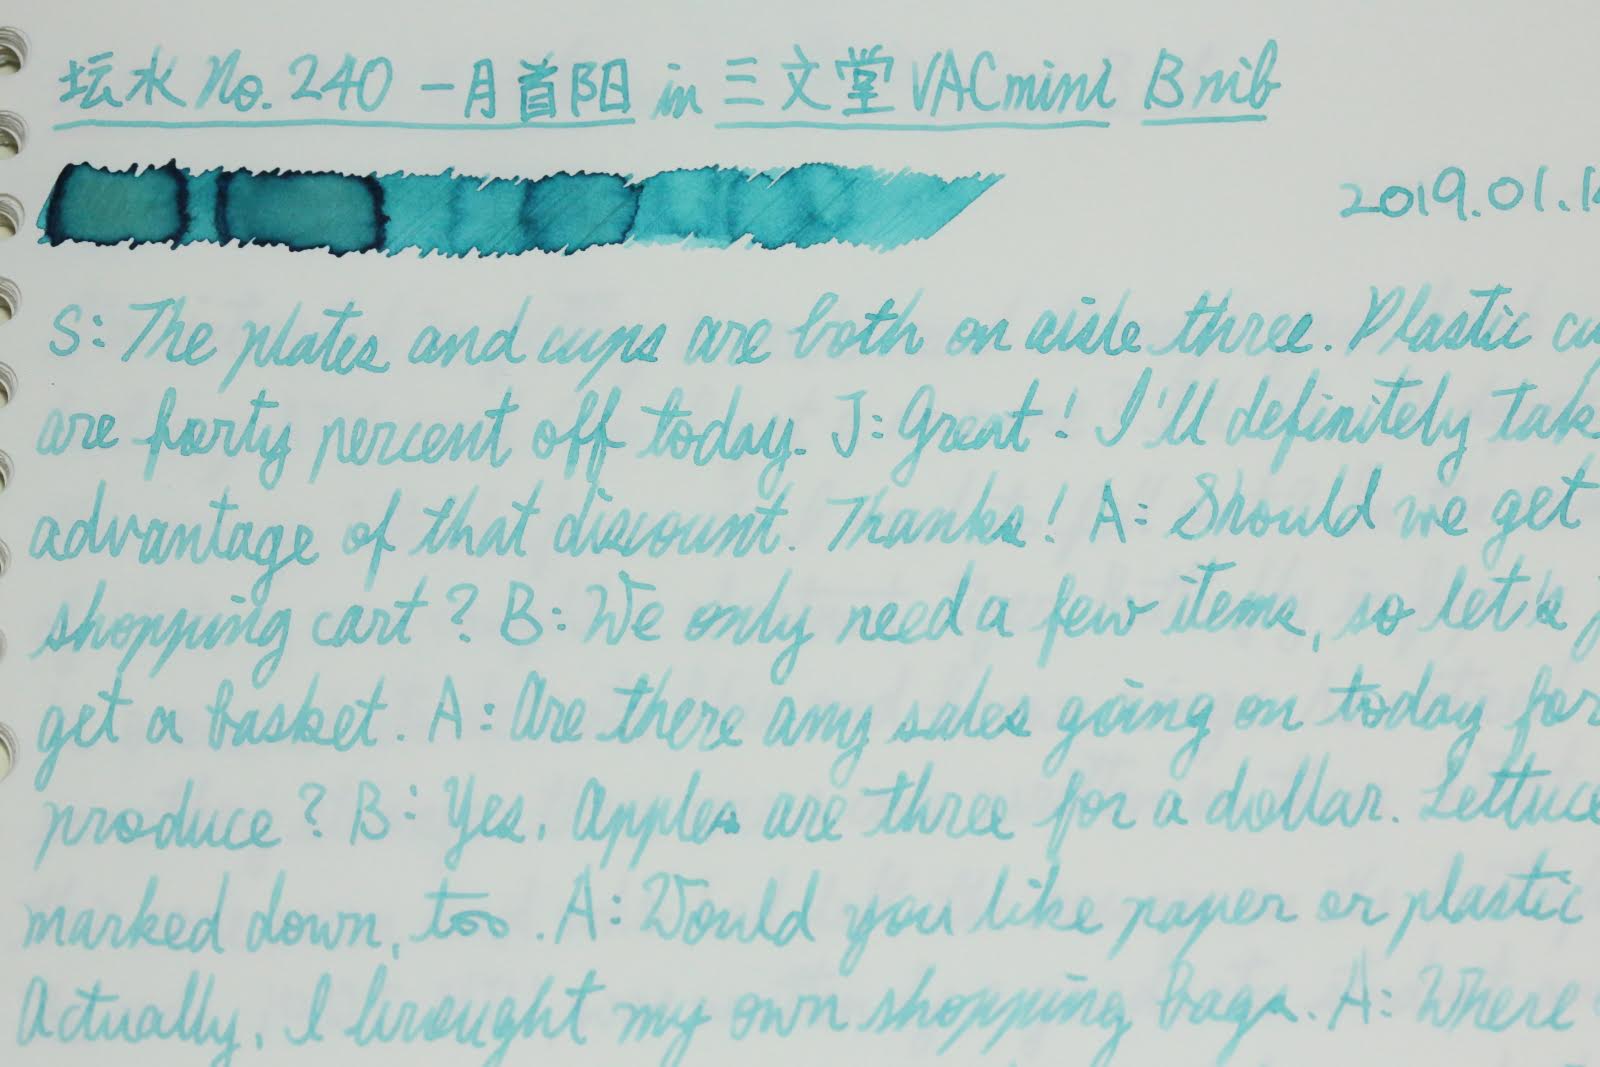 坛水 No. 240 一月首阳 in 三文堂 VACmini B nib
2019.01.1
S: The plates and cups are both on aisle three. Plastic cu
are forty percent off today. J: Great! I'll definitely tak
advantage of that discount. Thanks! A: Should we get
shopping cart? B: We only need a few items, so let's j
get a basket. A: Are there any sales going on today for
produce? B: Yes, Apples are three for a dollar. Lettuce
marked down, too. A: Would you like paper or plastic
Actually, I brought my own shopping bags. A: Where